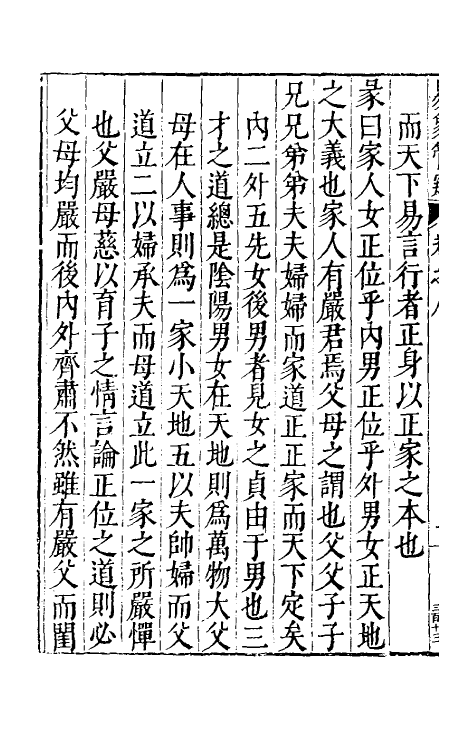 而天下易言行者正身以正家之本也
彖曰家人女正位乎內男正位乎外男女正天地
之大義也家人有嚴君焉父母之謂也父父子子
兄兄弟弟夫夫婦婦而家道正正家而天下定矣
內二外五先女後男者見女之貞由于男也三
才之道總是陰陽男女在天地則為萬物大父
母在人事則為一家小天地五以夫帥婦而父
道立二以婦承夫而母道立此一家之所嚴憚
也父嚴母慈以育子之情言論正位之道則必
父母均嚴而後內外齊肅不然雖有嚴父而閨